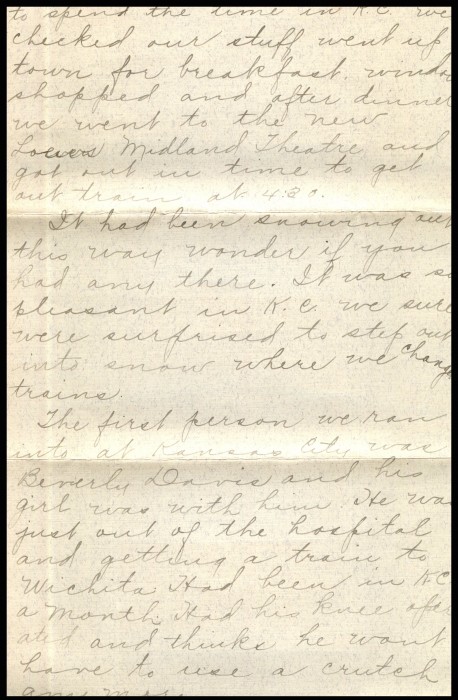 to spend the time in K.C. we
checked our stuff went up
town for breakfast. window
shopped and after dinner
we went to the new
Loews Midland Theatre and
got out in time to get
out train at 4:30.
It had been snowing out
this way wonder if you
had any there. It was so
pleasant in K.C. we sure
were surprised to step out
into snow where we change
trains.
The first person we ran
into at Kansas City was
Beverly Davis and his
girl was with him. He was
just out of the hospital
and getting a train to
Wichita Had been in K.C
a month. Had his knee oper
ated and thinks he wont
have to use a crutch
any more